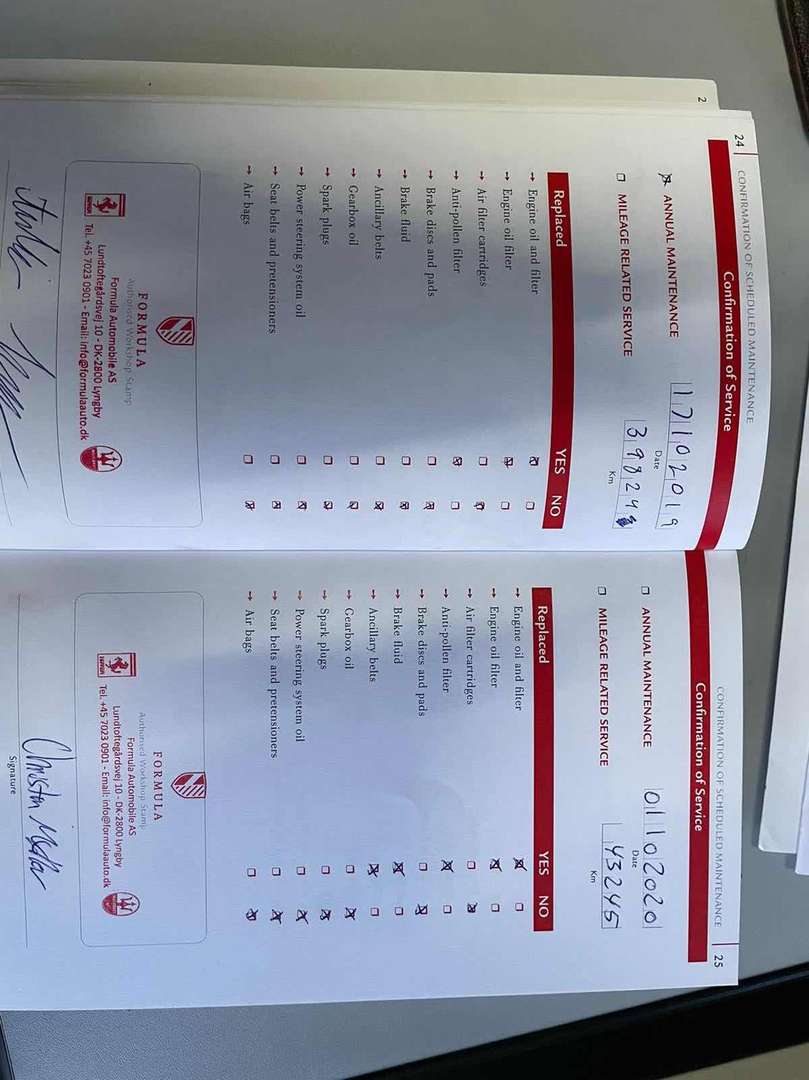 2
24
CONFIRMATION OF SCHEDULED MAINTENANCE
Confirmation of Service
ANNUAL MAINTENANCE 17102019
Date
MILEAGE RELATED SERVICE 39824
Km
Replaced YES NO
→ Engine oil and filter
→ Engine oil filter
→ Air filter cartridges
→ Anti-pollen filter
→ Brake discs and pads
→ Brake fluid
→ Ancillary belts
→ Gearbox oil
→ Spark plugs
→ Power steering system oil
→ Seat belts and pretensioners
→ Air bags
FORMULA
Authorised Workshop Stamp
Formula Automobile AS
Lundtoftegårdsvej 10 - DK-2800 Lyngby
Tel. +45 7023 0901 - Email: info@formulaauto.dk
CONFIRMATION OF SCHEDULED MAINTENANCE
25
Confirmation of Service
ANNUAL MAINTENANCE 01102020
Date
MILEAGE RELATED SERVICE 43245
Km
Replaced YES NO
→ Engine oil and filter
→ Engine oil filter
→ Air filter cartridges
→ Anti-pollen filter
→ Brake discs and pads
→ Brake fluid
→ Ancillary belts
→ Gearbox oil
→ Spark plugs
→ Power steering system oil
→ Seat belts and pretensioners
→ Air bags
FORMULA
Authorised Workshop Stamp
Formula Automobile AS
Lundtoftegårdsvej 10 - DK-2800 Lyngby
Tel. +45 7023 0901 - Email: info@formulaauto.dk
Signature